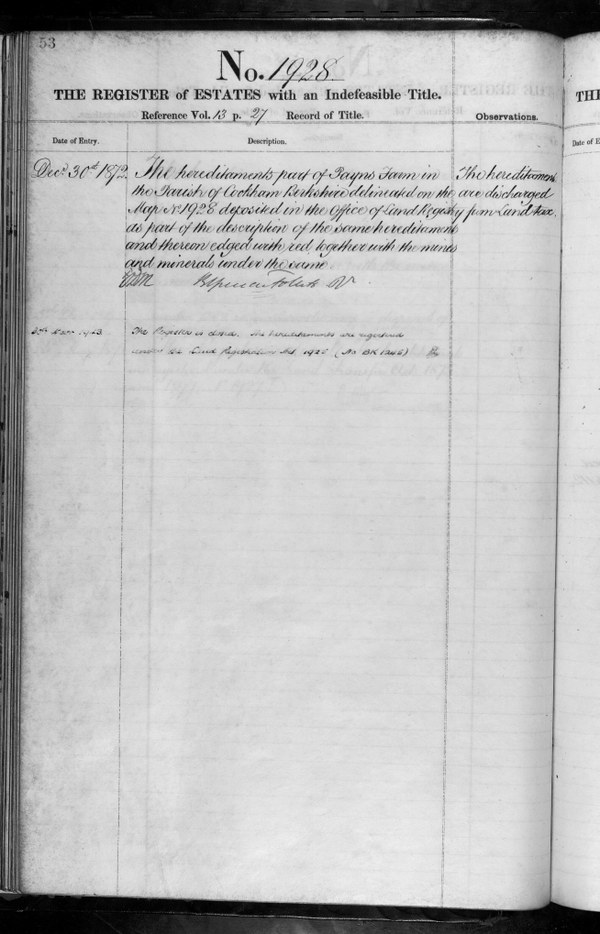 53
No. 1928.
THE REGISTER of ESTATES with an Indefeasible Title.
Reference Vol. 13 p. 27 Record of Title.
Observations.
Date of Entry.
Description.
Decr 30th 1872
The hereditaments part of Payns Farm in
the Parish of Cookham Berkshire delineated on the
Map No 1928 deposited in the Office of Land Registry
as part of the description of the same hereditaments
and thereon edged with red together with the mines
and minerals under the same
The hereditaments
are discharged
from Land tax.
The Register is closed. The hereditaments are registered
under the Land Registration Act, 1925 (No BK 1246)
THE
Date of E